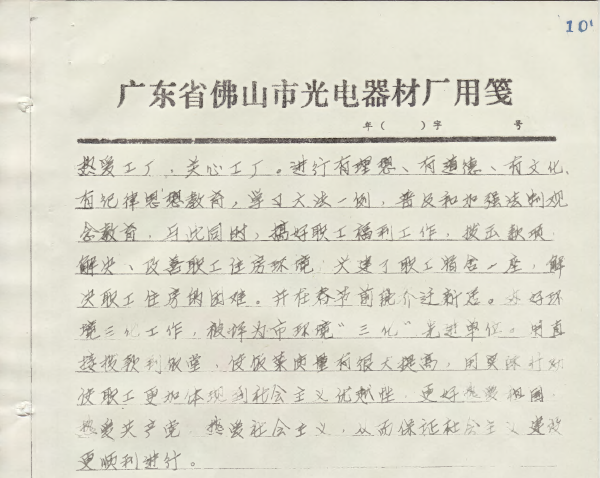 101
广东省佛山市光电器材厂用笺
年（ ）字 号
热爱工厂，关心工厂。进行有理想、有道德、有文化、
有纪律思想教育，学习大法一例，普及和加强法制观
念教育，与此同时，搞好职工福利工作，拨出款项
解决、改善职工住房环境，兴建了职工宿舍一座，解
决职工住房的困难。并在春节前统介迁新居。好环
境三化工作，被评为市环境“三化”先进单位。
接拨款到饭堂，使饭菜质量有很大提高，用实际行动
使职工更加体现到社会主义优越性，更好热爱祖国，
热爱共产党，热爱社会主义，从而保证社会主义建设
更顺利进行。